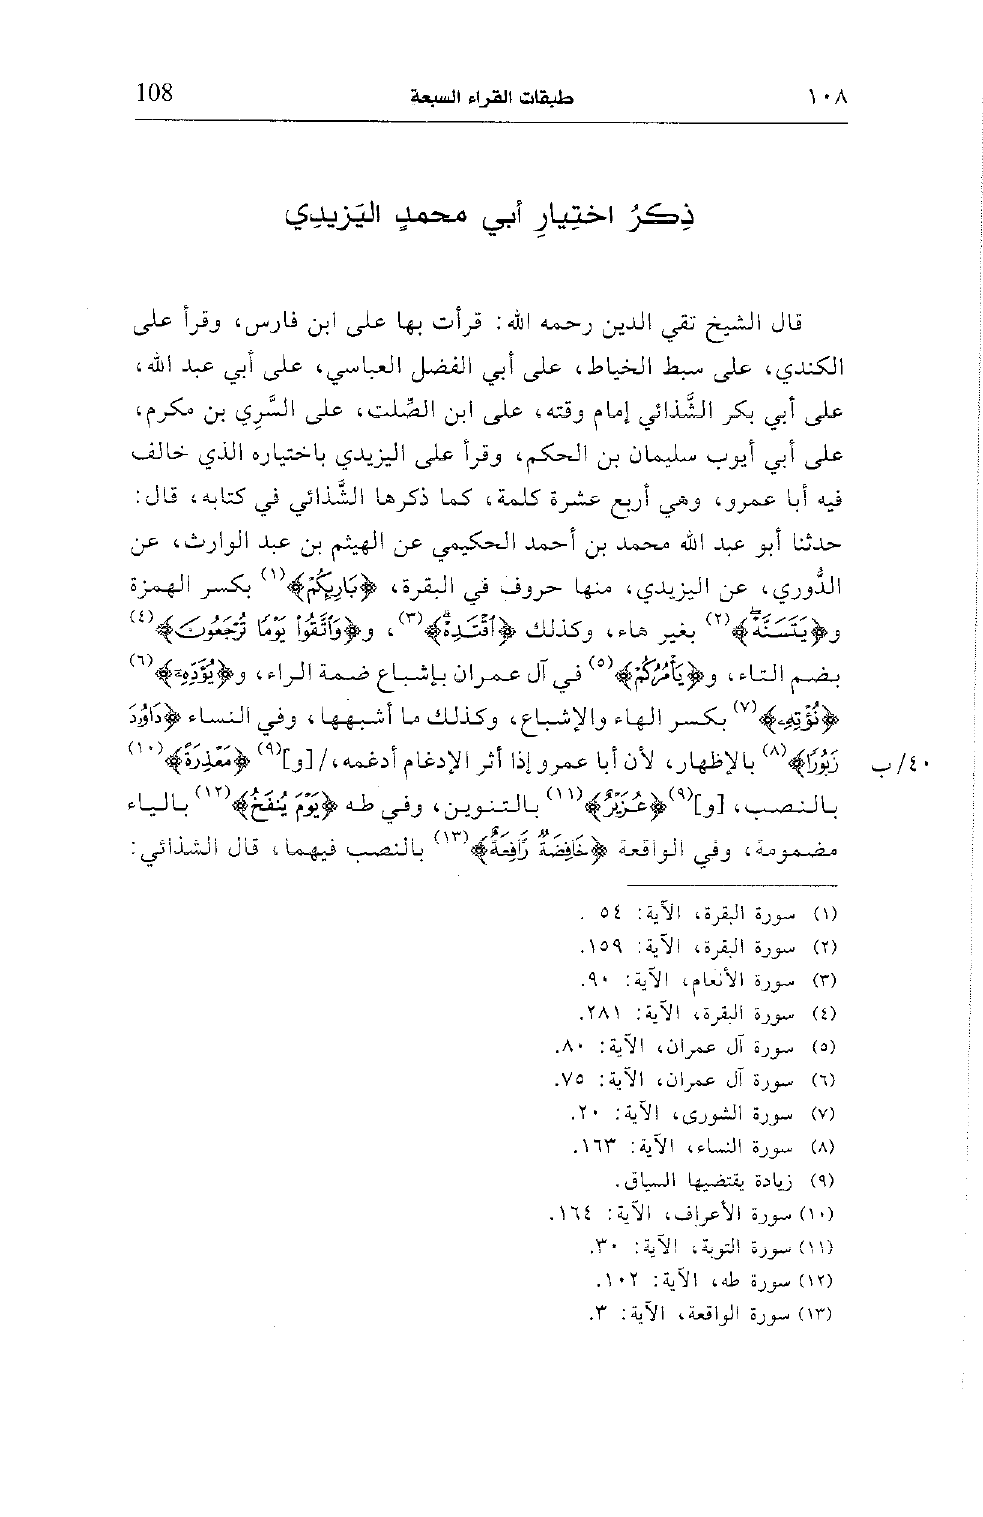 ١٠٨ طبقات القراء السبعة 108
ذِكرُ اختِيارِ أبي محمدٍ اليَزيدِي
قال الشيخ تقي الدين رحمه الله: قرأت بها على ابن فارس، وقرأ على
الكندي، على سبط الخياط، على أبي الفضل العباسي، على أبي عبد الله،
على أبي بكر الشَّذائي إمام وقته، على ابن الصَّلت، على السَّرِي بن مكرم،
على أبي أيوب سليمان بن الحكم، وقرأ على اليزيدي باختياره الذي خالف
فيه أبا عمرو، وهي أربع عشرة كلمة، كما ذكرها الشَّذائي في كتابه، قال:
حدثنا أبو عبد الله محمد بن أحمد الحكيمي عن الهيثم بن عبد الوارث، عن
الدُّوري، عن اليزيدي، منها حروف في البقرة، ﴿بَارِئِكُمْ﴾(١) بكسر الهمزة
و﴿يَتَسَنَّهْ﴾(٢) بغير هاء، وكذلك ﴿اقْتَدِهْ﴾(٣)، و﴿وَاتَّقُوا يَوْمًا تُرْجَعُونَ﴾(٤)
بضم التاء، و﴿يَأْمُرُكُمْ﴾(٥) في آل عمران بإشباع ضمة الراء، و﴿يُؤَدِّهِ﴾(٦)
﴿نُؤْتِهِ﴾(٧) بكسر الهاء والإشباع، وكذلك ما أشبهها، وفي النساء ﴿دَاوُدَ
زَبُورًا﴾(٨) بالإظهار، لأن أبا عمرو إذا أثر الإدغام أدغمه،/ [و](٩) ﴿مَعْذِرَةً﴾(١٠) ٤٠/ب
بالنصب، [و](٩)﴿عُزَيْرٌ﴾(١١) بالتنوين، وفي طه ﴿يَوْمَ يُنفَخُ﴾(١٢) بالياء
مضمومة، وفي الواقعة ﴿خَافِضَةٌ رَّافِعَةٌ﴾(١٣) بالنصب فيهما، قال الشذائي:
(١) سورة البقرة، الآية: ٥٤ .
(٢) سورة البقرة، الآية: ١٥٩.
(٣) سورة الأنعام، الآية: ٩٠.
(٤) سورة البقرة، الآية: ٢٨١.
(٥) سورة آل عمران، الآية: ٨٠.
(٦) سورة آل عمران، الآية: ٧٥.
(٧) سورة الشورى، الآية: ٢٠.
(٨) سورة النساء، الآية: ١٦٣.
(٩) زيادة يقتضيها السياق.
(١٠) سورة الأعراف، الآية: ١٦٤.
(١١) سورة التوبة، الآية: ٣٠.
(١٢) سورة طه، الآية: ١٠٢.
(١٣) سورة الواقعة، الآية: ٣.